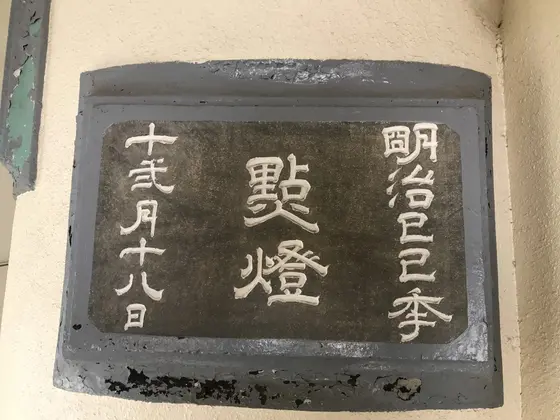 明治己巳季
點燈
十弐月十八日